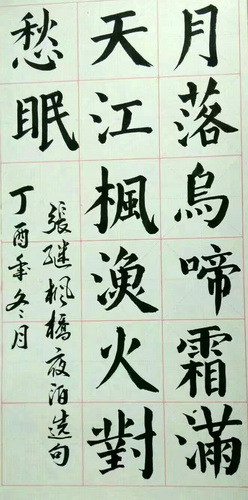 月落烏啼霜滿
天江楓漁火對
愁眠
張繼楓橋夜泊造句
丁酉年冬月